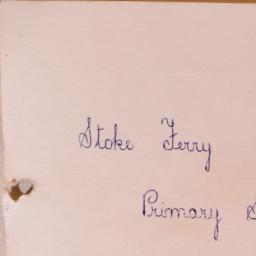 Stoke Ferry
Primary S